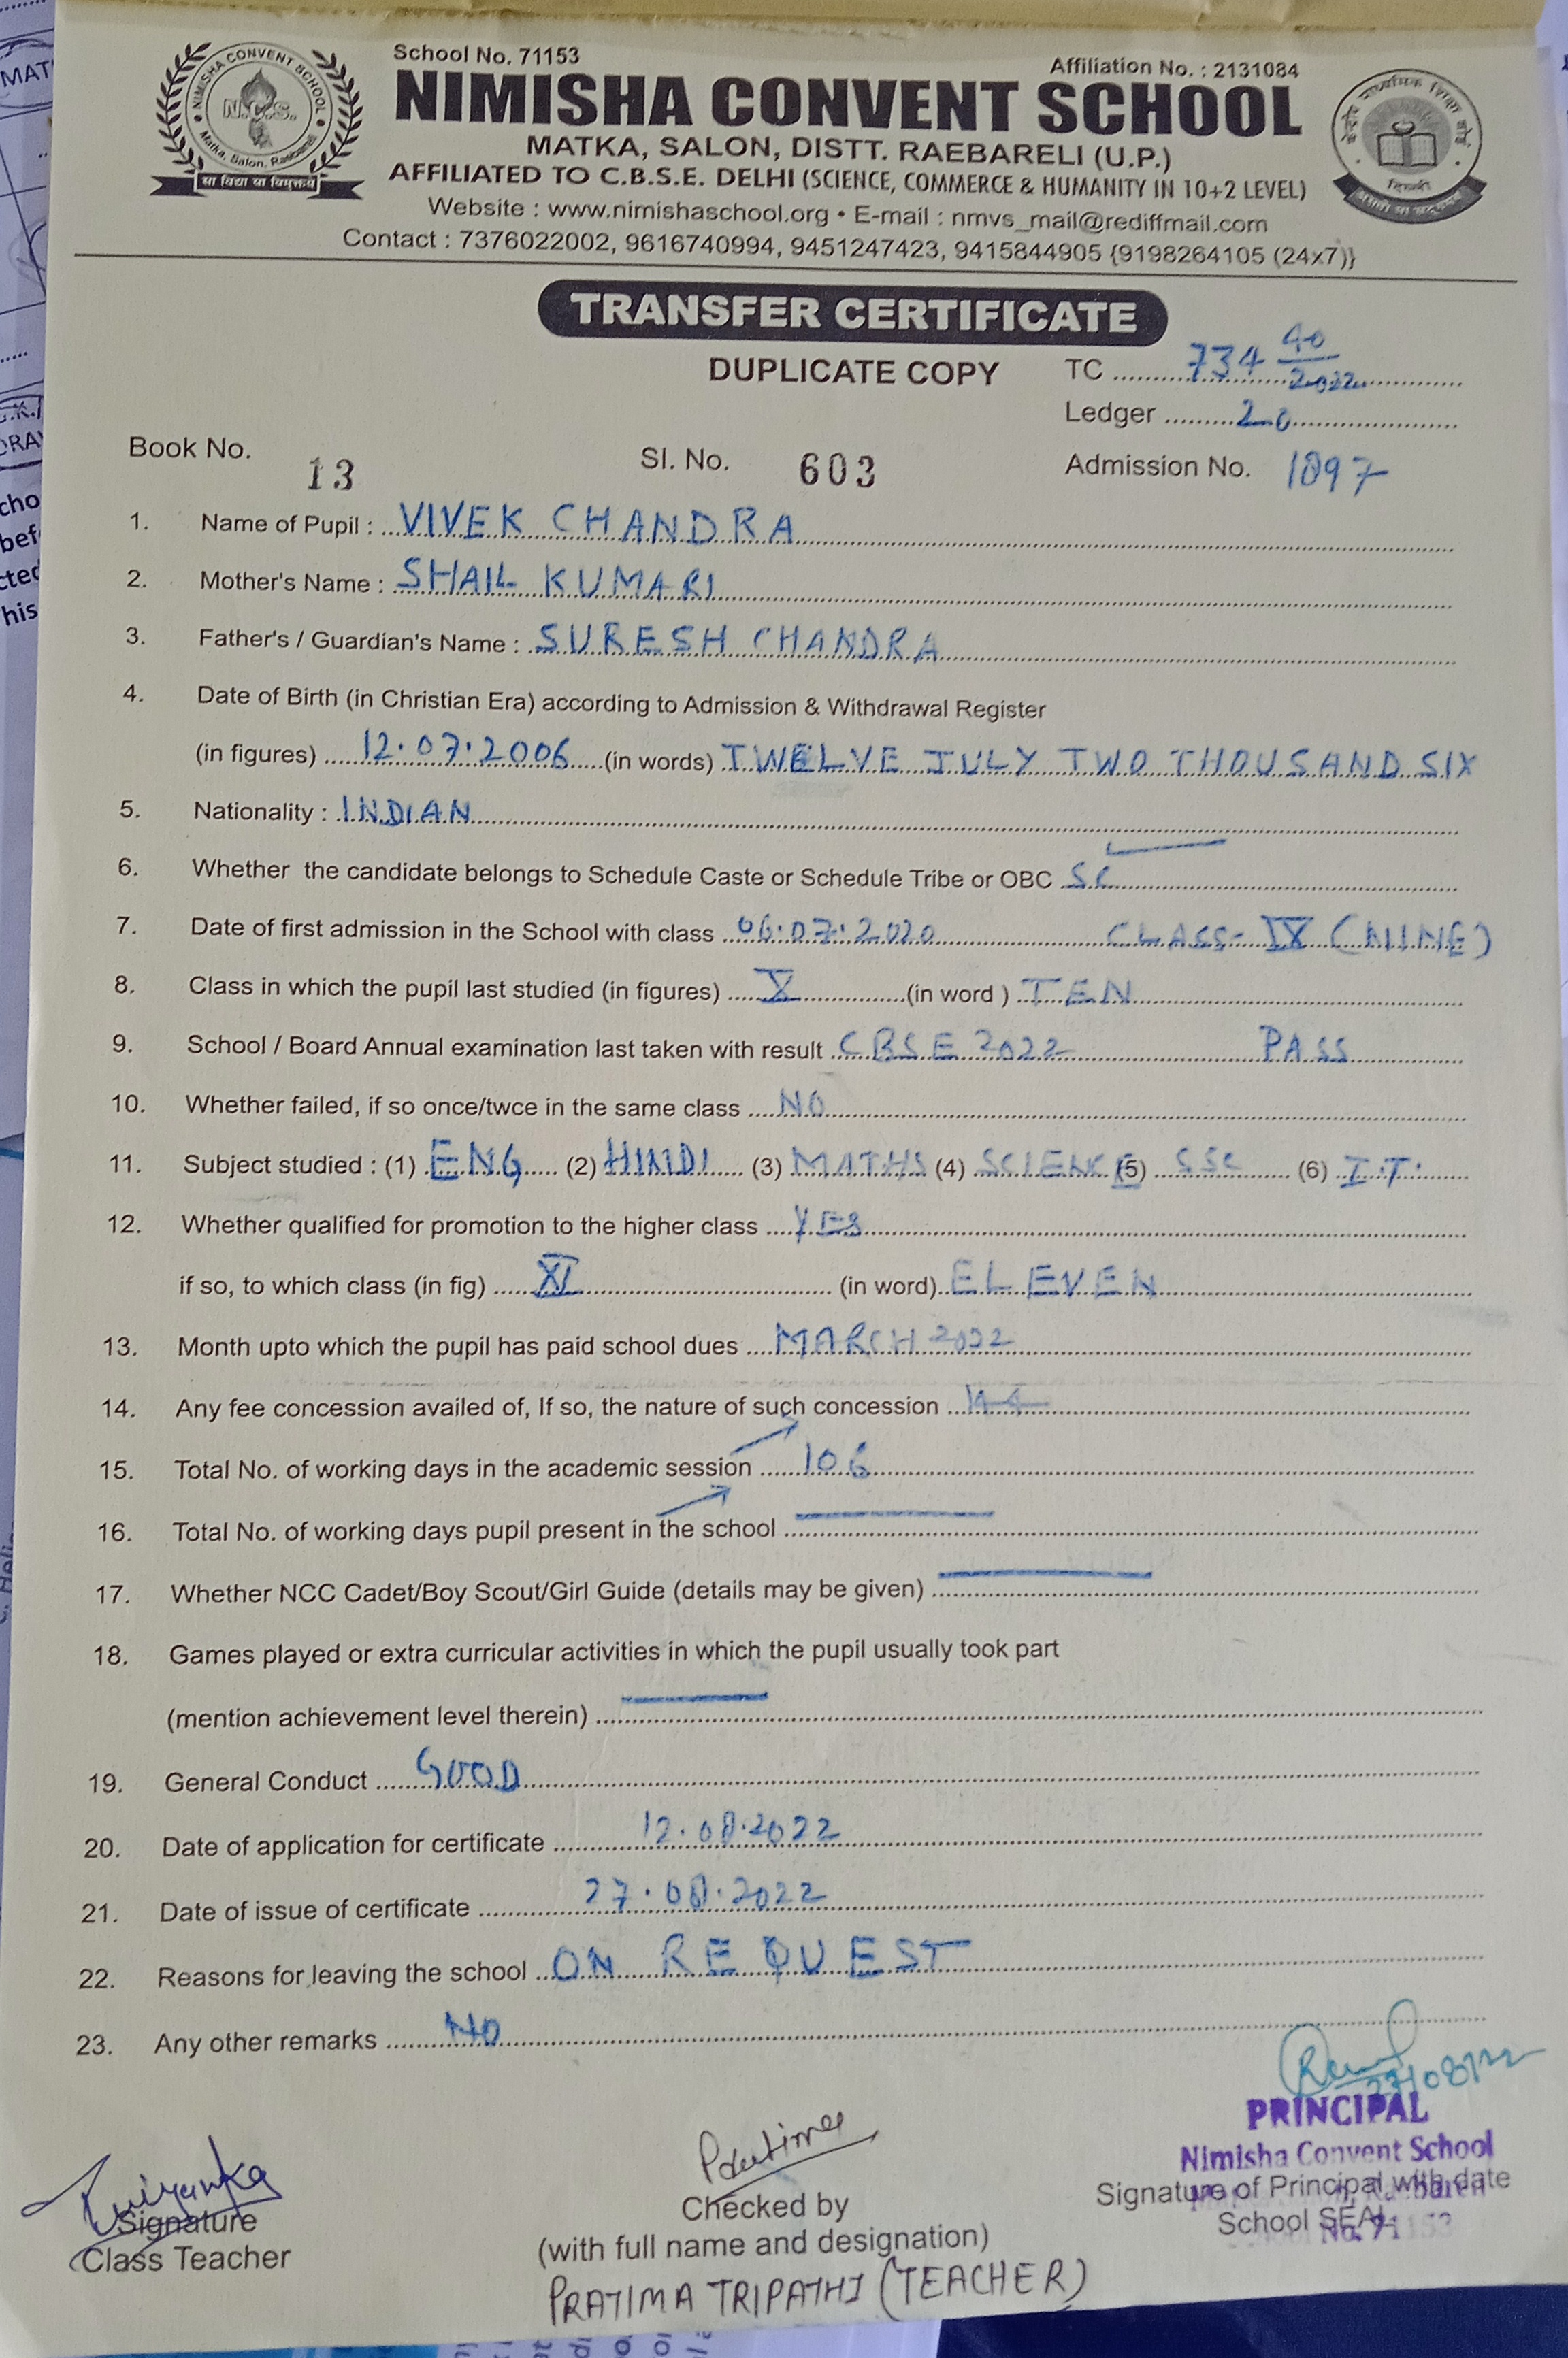 School No. 71153
Affiliation No. : 2131084
NIMISHA CONVENT SCHOOL
MATKA, SALON, DISTT. RAEBARELI (U.P.)
AFFILIATED TO C.B.S.E. DELHI (SCIENCE, COMMERCE & HUMANITY IN 10+2 LEVEL)
Website : www.nimishaschool.org • E-mail : nmvs_mail@rediffmail.com
Contact : 7376022002, 9616740994, 9451247423, 9415844905 {9198264105 (24x7)}
NIMISHA CONVENT SCHOOL
N.C.S.
Matka, Salon, Raebareli
सा विद्या या विमुक्तये
केन्द्रीय माध्यमिक शिक्षा बोर्ड
दिल्ली
TRANSFER CERTIFICATE
DUPLICATE COPY
TC 734 40/2022
Ledger 20
Book No. 13 Sl. No. 603 Admission No. 1897
1. Name of Pupil : VIVEK CHANDRA
2. Mother's Name : SHAIL KUMARI
3. Father's / Guardian's Name : SURESH CHANDRA
4. Date of Birth (in Christian Era) according to Admission & Withdrawal Register
(in figures) 12.07.2006 (in words) TWELVE JULY TWO THOUSAND SIX
5. Nationality : INDIAN
6. Whether the candidate belongs to Schedule Caste or Schedule Tribe or OBC SC
7. Date of first admission in the School with class 06.07.2020 CLASS- IX (NINE)
8. Class in which the pupil last studied (in figures) X (in word ) TEN
9. School / Board Annual examination last taken with result CBSE 2022 PASS
10. Whether failed, if so once/twce in the same class NO
11. Subject studied : (1) ENG (2) HINDI (3) MATHS (4) SCIENCE (5) SSC (6) I.T.
12. Whether qualified for promotion to the higher class YES
if so, to which class (in fig) XI (in word) ELEVEN
13. Month upto which the pupil has paid school dues MARCH 2022
14. Any fee concession availed of, If so, the nature of such concession
15. Total No. of working days in the academic session 106
16. Total No. of working days pupil present in the school
17. Whether NCC Cadet/Boy Scout/Girl Guide (details may be given)
18. Games played or extra curricular activities in which the pupil usually took part
(mention achievement level therein)
19. General Conduct GOOD
20. Date of application for certificate 12.08.2022
21. Date of issue of certificate 27.08.2022
22. Reasons for leaving the school ON REQUEST
23. Any other remarks NO
27/08/22
PRINCIPAL
Nimisha Convent School
Signature of Principal with date
School SEAL
No. 71153
Pratima
Checked by
(with full name and designation)
PRATIMA TRIPATHI (TEACHER)
Priyanka
Signature
Class Teacher